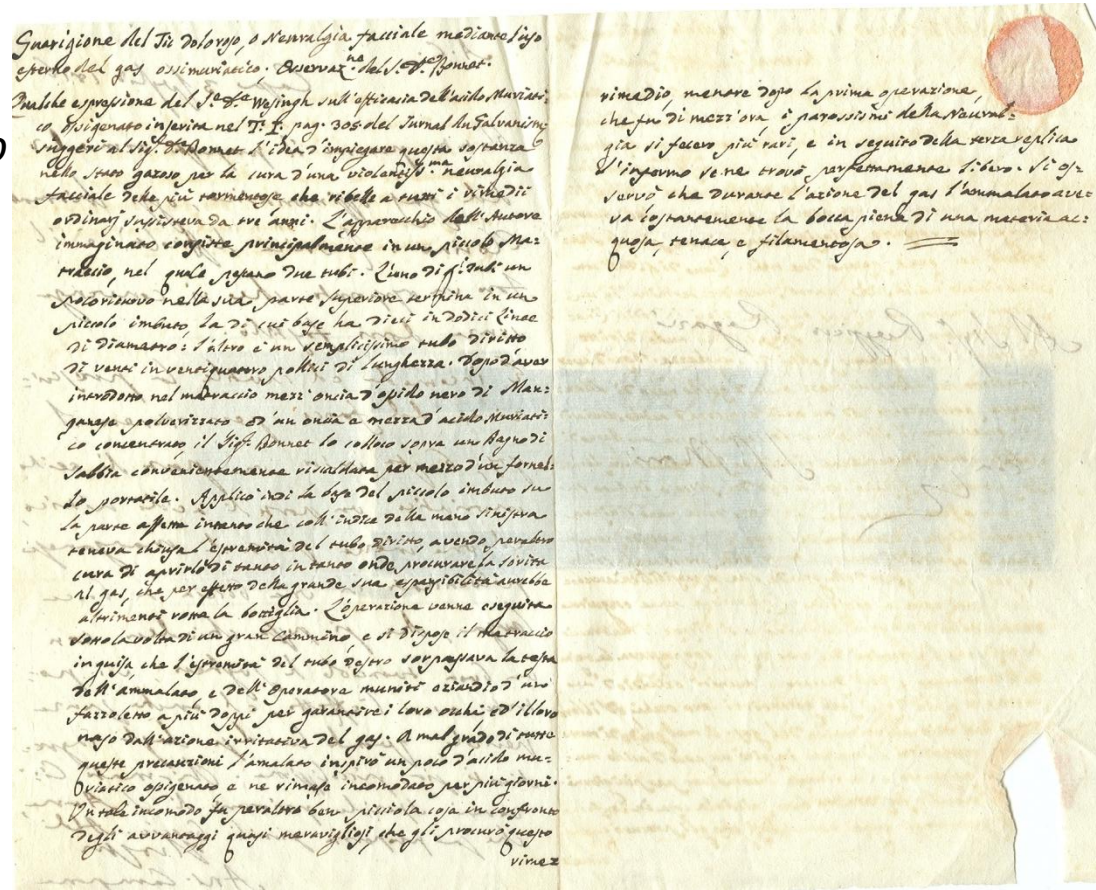 Guarigione del Tic doloroso, o Nevralgia facciale mediante l'uso
esterno del gas ossimuriatico. Osservaz.ne del S.r D.re Bonnet.
Qualche espressione del S.r D.re sull'efficacia dell'acido Muriati-
co ossigenato inserita nel T. I. pag. 305 del Jurnal du Galvanism
suggerì al Sig.r D.re Bonnet l'idea d'impiegare questa sostanza
nello stato gazoso per la cura d'una violentiss.ma nevralgia
facciale delle più tormentose che ribelle a tutti i rimedii
ordinarj sussisteva da tre anni. L'apparecchio dell'Autore
immaginato consiste principalmente in un piccolo Ma-
traccio, nel quale passano due tubi. L'uno di s.i tubi un
poco ritorto nella sua parte superiore termina in un
piccolo imbuto, la di cui base ha dieci in dodici Linee
di diametro: l'altro è un semplicissimo tubo diritto
di venti in ventiquattro pollici di lunghezza. Dopo d'aver
introdotto nel matraccio mezz'oncia d'ossido nero di Man-
ganese polverizzato ed un'oncia e mezza d'acido Muriati-
co concentrato il Sig.r Bonnet lo collocò sopra uno Bagno di
Sabbia convenientemente riscaldata per mezzo d'un fornel-
lo portatile. Applicò indi la base del piccolo imbuto su
la parte affetta intanto che coll'indice della mano sinistra
teneva chiusa l'estremità del tubo diritto, avendo peraltro
cura di aprirlo di tanto in tanto onde procurare la sortita
al gas, che per effetto della grande sua espansibilità avrebbe
altrimenti rotta la bottiglia. L'operazione venne eseguita
sotto la volta di un gran Cammino, e si dispose il matraccio
in guisa, che l'estremità del tubo destro sorpassava la testa
dell'ammalato, e dell'Operatore muniti eziandio d'uno
fazzoletto a più doppi per garantire i loro occhi ed il loro
naso dall'azione irritativa del gas. A mal grado di tutte
queste precauzioni l'amalato inspirò un poco d'acido mu-
riatico ossigenato e ne rimase incomodato per più giorni.
Un tale incomodo fu peraltro ben picciola cosa in confronto
degli avvantaggi quasi meravigliosi, che gli procurò questo
rimez
rimedio, mentre dopo la prima operazione,
che fu di mezz'ora i parossismi della Neural-
gia si fecero più rari, e in seguito della terza replica
l'infermo se ne trovò perfettamente libero. Si os-
servò che durante l'azione del gas l'ammalato ave-
va costantemente la bocca piena di una materia ac-
quosa, tenace, e filamentosa.